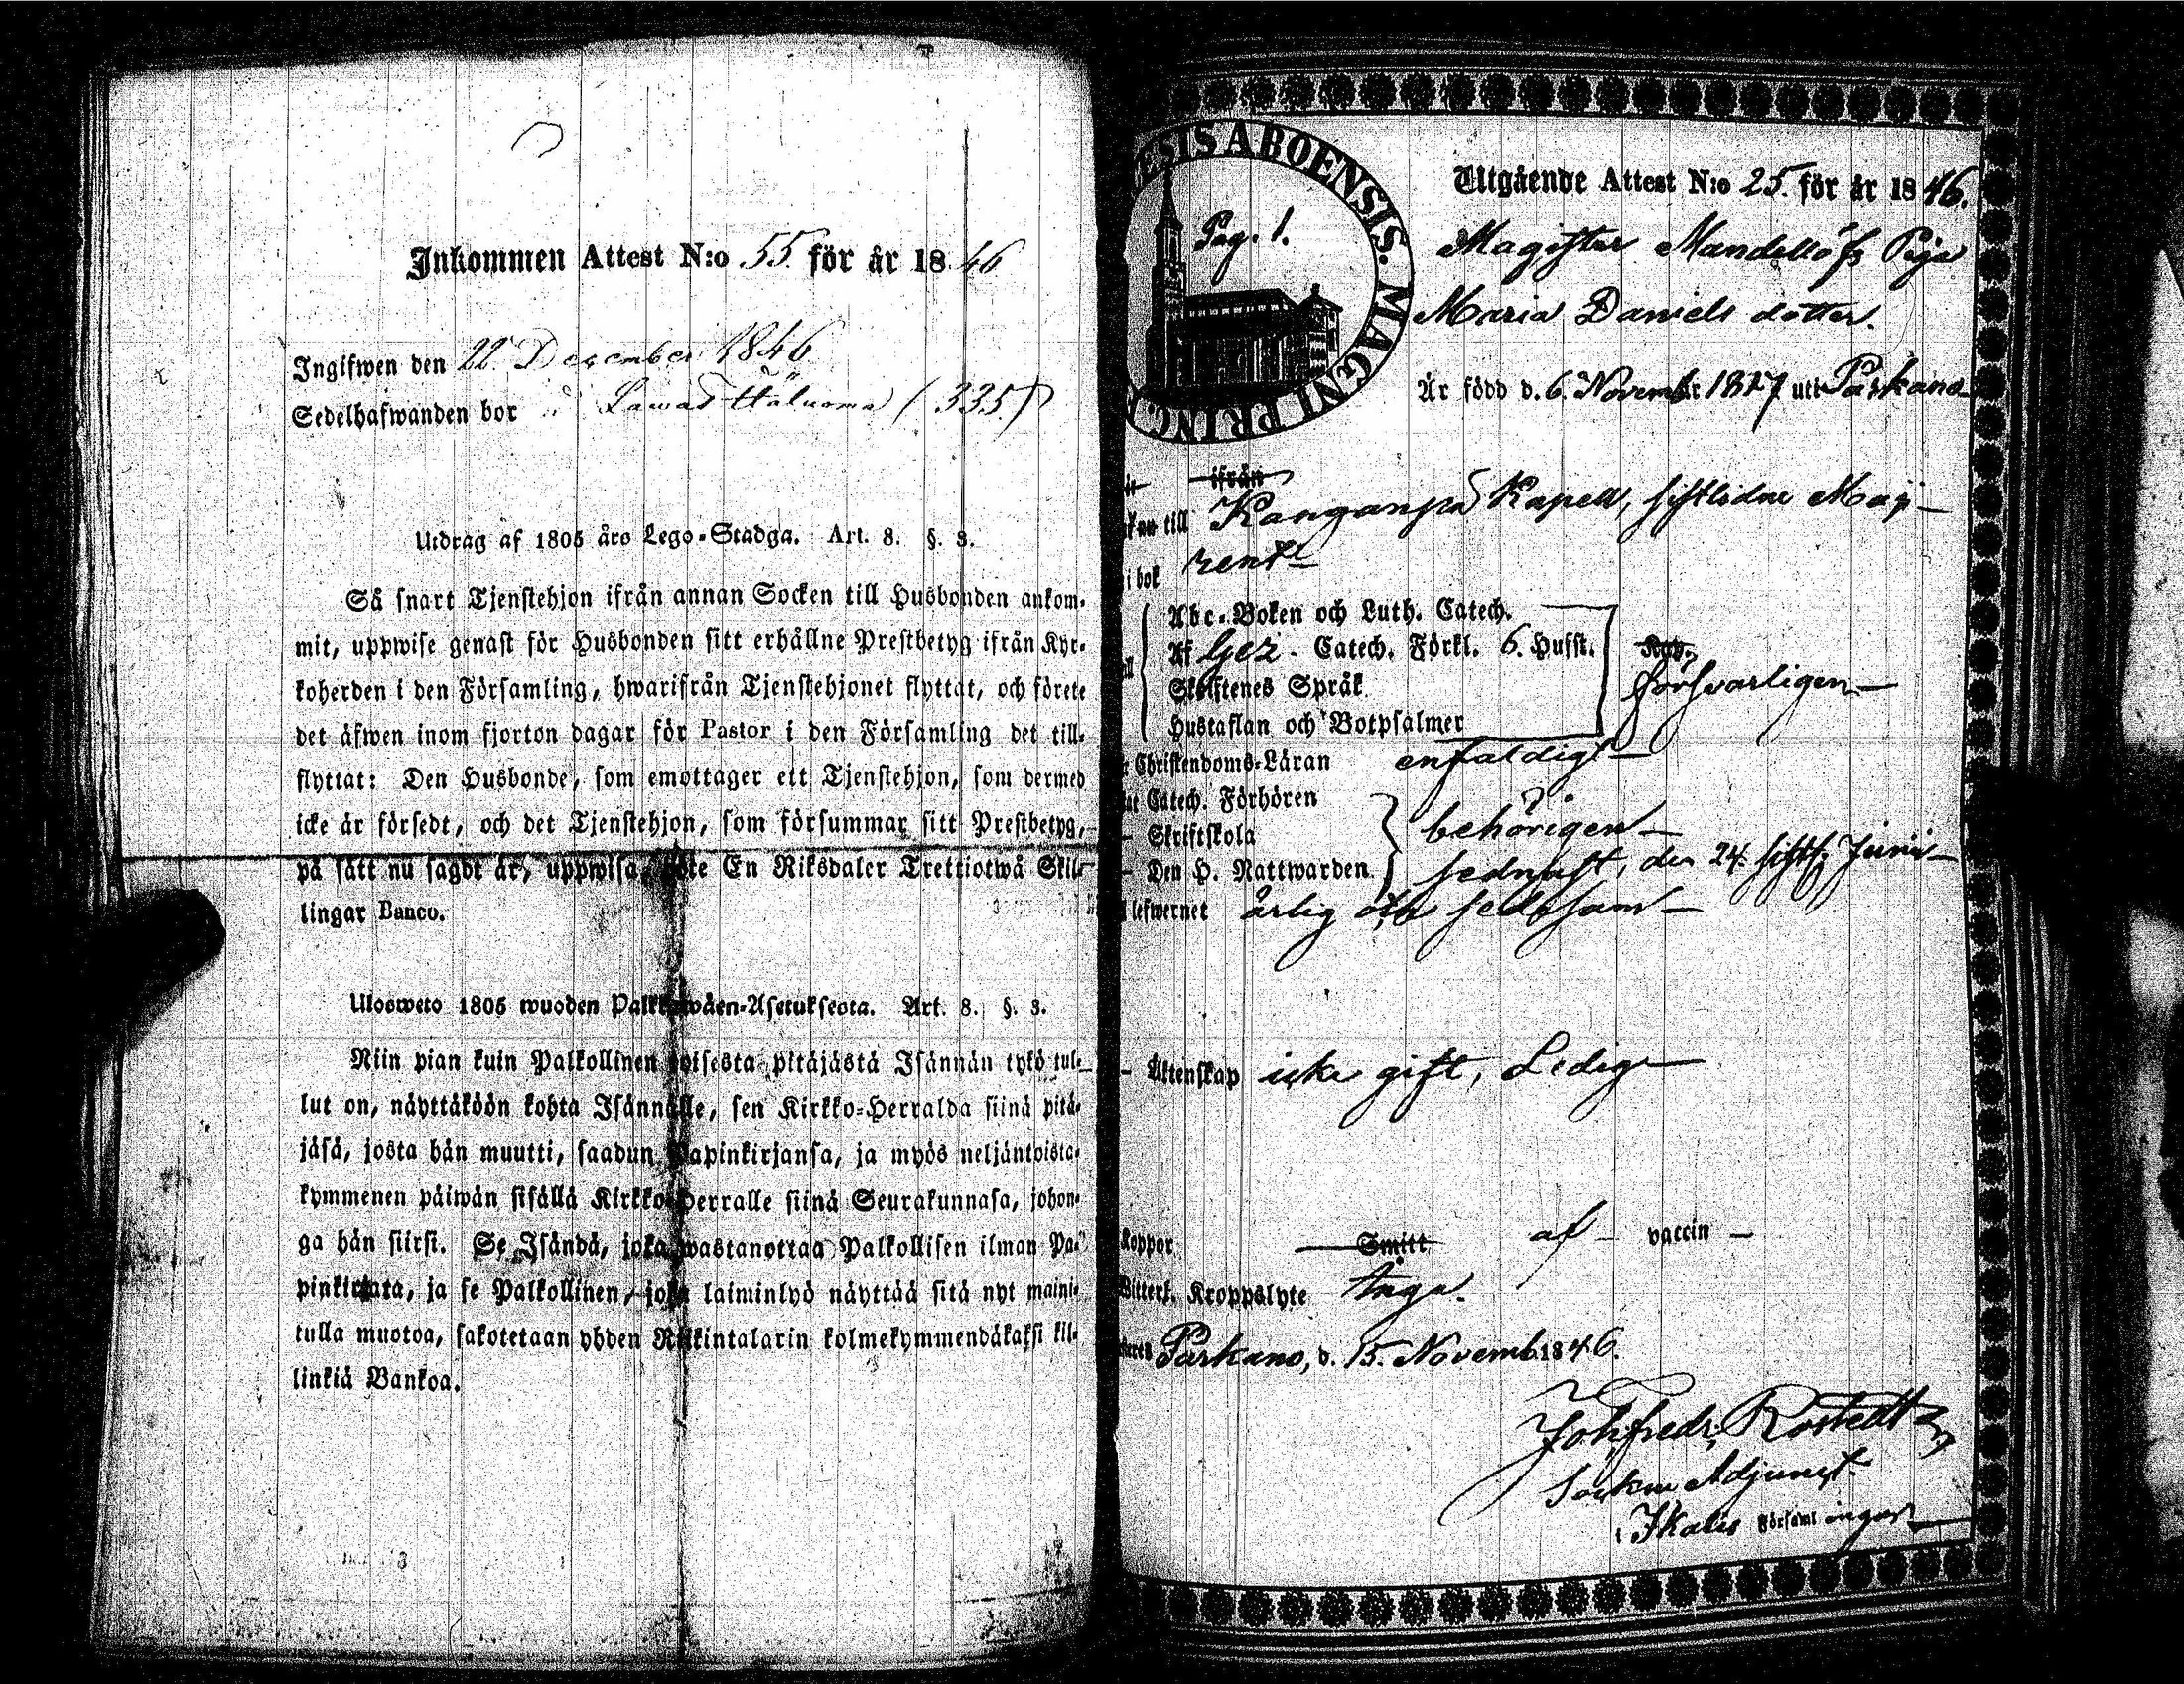 Inkommen Attest N:o 55. för år 1846
Ingifwen den 22 December 1846
Sedelhafwanden bor (335)
Utdrag af 1805 års Lego-Stadga. Art. 8. §. 3.
Så snart Tjenstehjon ifrån annan Socken till Husbonden ankom-
mit, uppwise genast för Husbonden sitt erhållne Prestbetyg ifrån Kyr-
koherden i den Församling, hwarifrån Tjenstehjonet flyttat, och förete
det äfwen inom fjorton dagar för Pastor i den Församling det till-
flyttat: Den Husbonde, som emottager ett Tjenstehjon, som dermed
icke är försedt, och det Tjenstehjon, som försummar sitt Prestbetyg,
på sätt nu sagdt är, uppwisa, böte En Riksdaler Trettiotwå Skil-
lingar Banco.
Ulosweto 1805 wuoden Palkkawäen-Asetuksesta. Art. 8. §. 3.
Niin pian kuin Palkollinen toisesta pitäjästä Isännän tykö tul-
lut on, näyttäköön kohta Isännälle, sen Kirkko-Herralda siinä pitä-
jäsä, josta hän muutti, saadun Papinkirjansa, ja myös neljäntoista-
kymmenen päiwän sisällä Kirkko-Herralle siinä Seurakunnasa, johon-
ga hän siirsi. Se Isändä, joka wastanottaa Palkollisen ilman Pa-
pinkirjata, ja se Palkollinen, joka laiminlyö näyttää sitä nyt maini-
tulla muotoa, sakotetaan yhden Riikintalarin kolmekymmendäkaksi kil-
linkiä Bankoa.
ESIS ABOENSIS. MAGNI PRINC
Pag. 1.
Utgående Attest N:o 25. för år 1846.
Magister Mandellöfs Piga
Maria Daniels dotter.
Är född d. 6. Novembr 1817 uti Parkano
ifrån
till Kanganpä Kapell, sistlidne Maji
i bok rent
Abc-Boken och Luth. Catech.
Af Gez. Catech. Förkl. 6. Hufst.
Skriftenes Språk
försvarligen
Hustaflan och Botpsalmer
Christendoms-Läran enfaldigt
Catech. Förhören
Skriftskola behörigen
Den H. Nattwarden sednast, den 24. sistl. Junii
lefwernet ärlig och sedesam
Äktenskap icke gift, Ledig
koppor Smitt af vaccin
Kroppslyte Inga.
Parkano, d. 15. Novemb. 1846.
Joh. Fredr. Rostedt
Socken Adjunct.
i Ikalis Församlingar